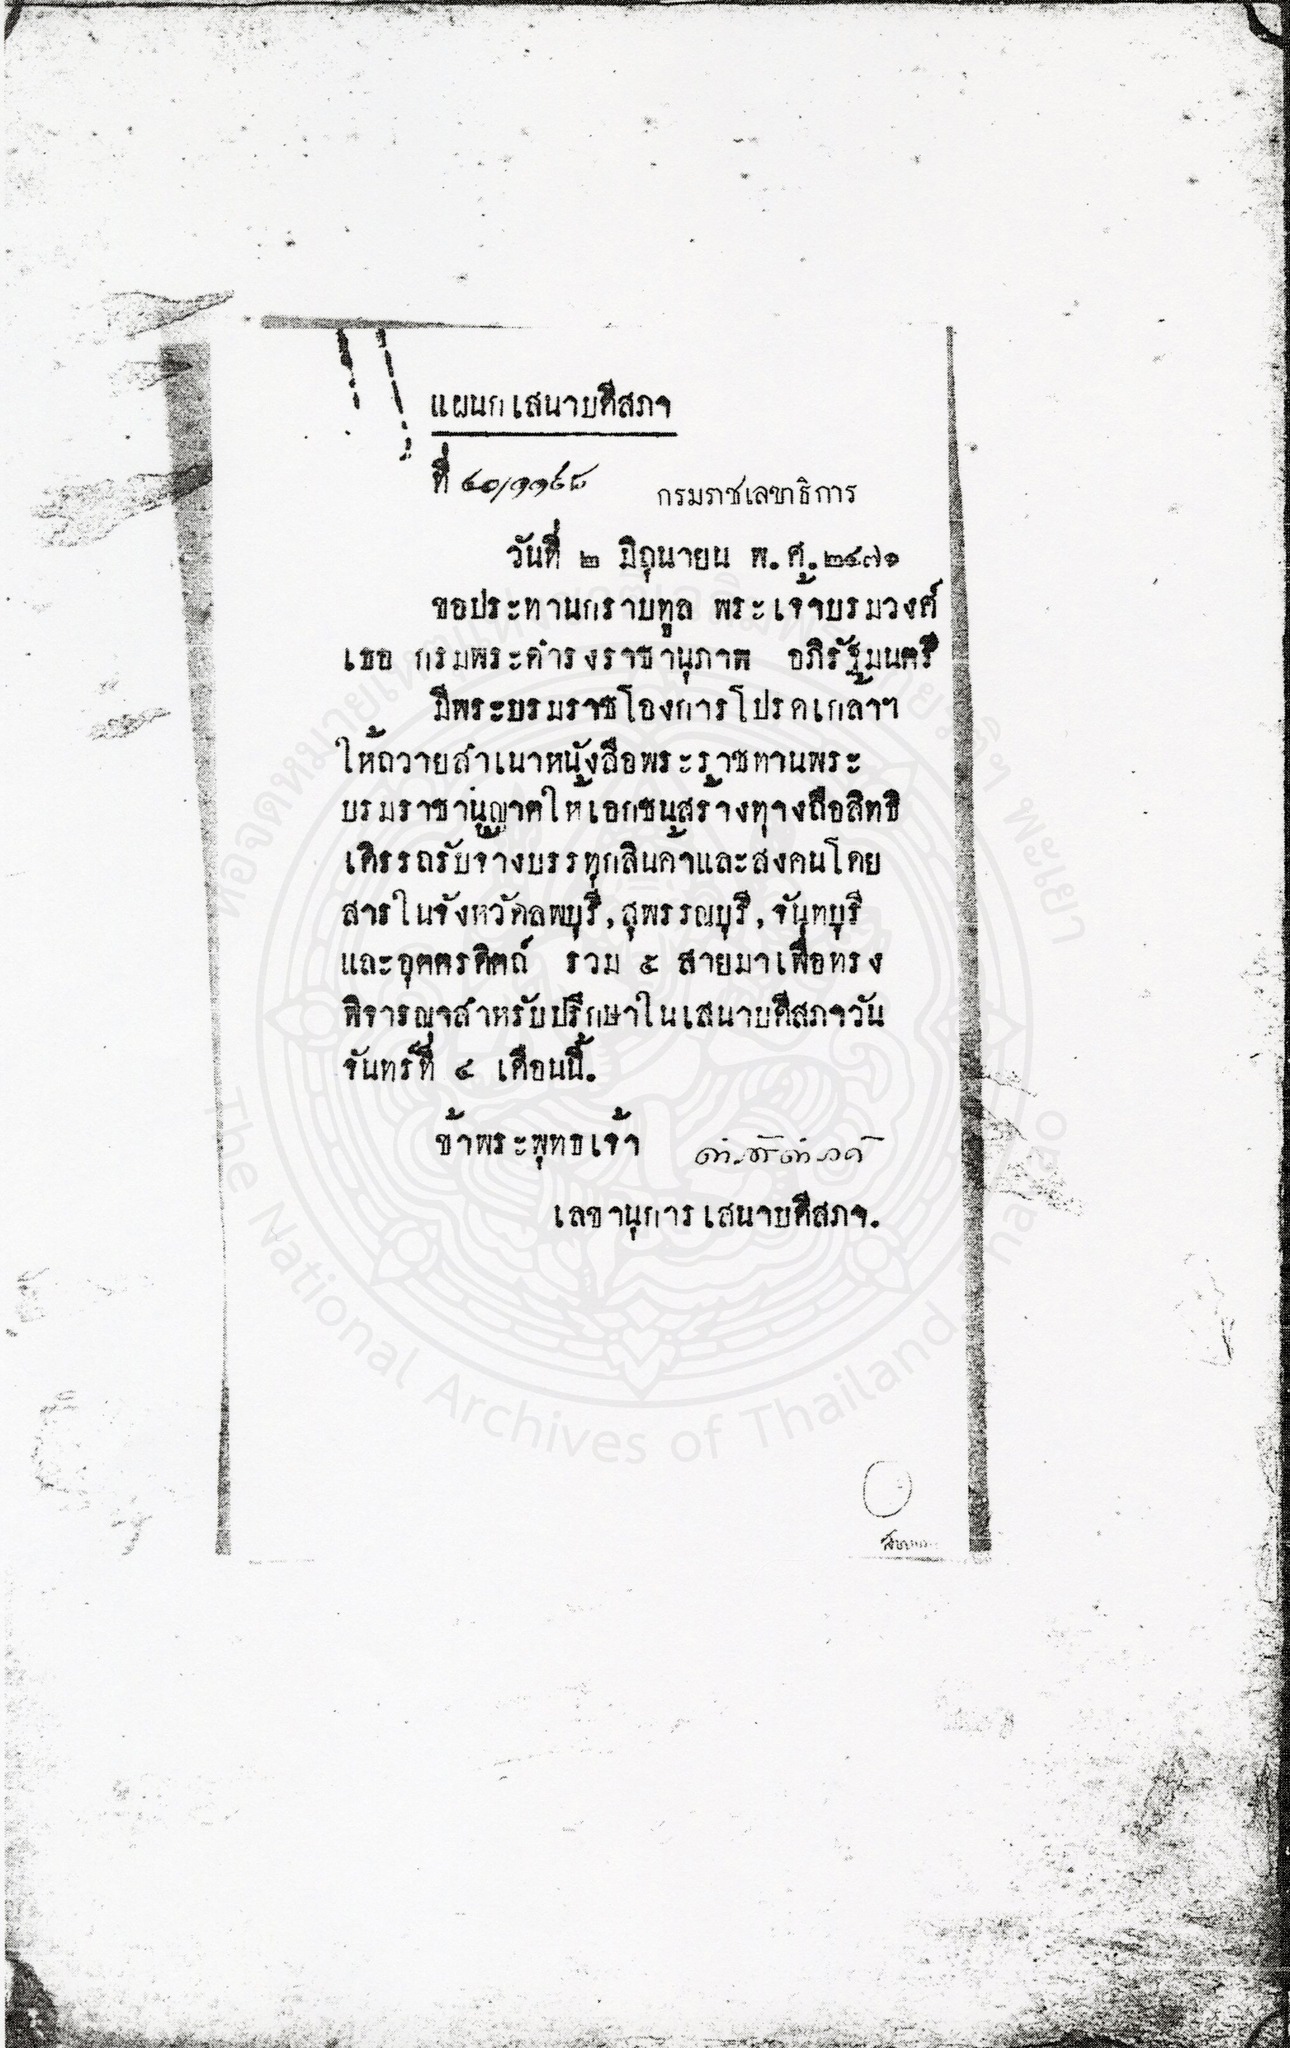 แผนกเสนาบดีสภา
ที่ ๔๐/๑๑๕๘
กรมราชเลขาธิการ
วันที่ ๒ มิถุนายน พ.ศ.๒๔๗๑
ขอประทานกราบทูล พระเจ้าบรมวงศ์
เธอ กรมพระดำรงราชานุภาพ อภิรัฐมนตรี
มีพระบรมราชโองการโปรดเกล้าฯ
ให้ถวายสำเนาหนังสือพระราชทานพระ
บรมราชานุญาตให้เอกชนสร้างทางถือสิทธิ
เดิรรถรับจ้างบรรทุกสินค้าและส่งคนโดย
สารในจังหวัดลพบุรี, สุพรรณบุรี, จันทบุรี
และอุตตรดิตถ์ รวม ๕ สายมาเพื่อทรง
พิจารณาสำหรับปรึกษาในเสนาบดีสภาวัน
จันทร์ที่ ๔ เดือนนี้.
ข้าพระพุทธเจ้า
เลขานุการเสนาบดีสภา.
หอจดหมายเหตุแห่งชาติเฉลิมพระเกียรติฯ พะเยา
The National Archives of Thailand Phayao